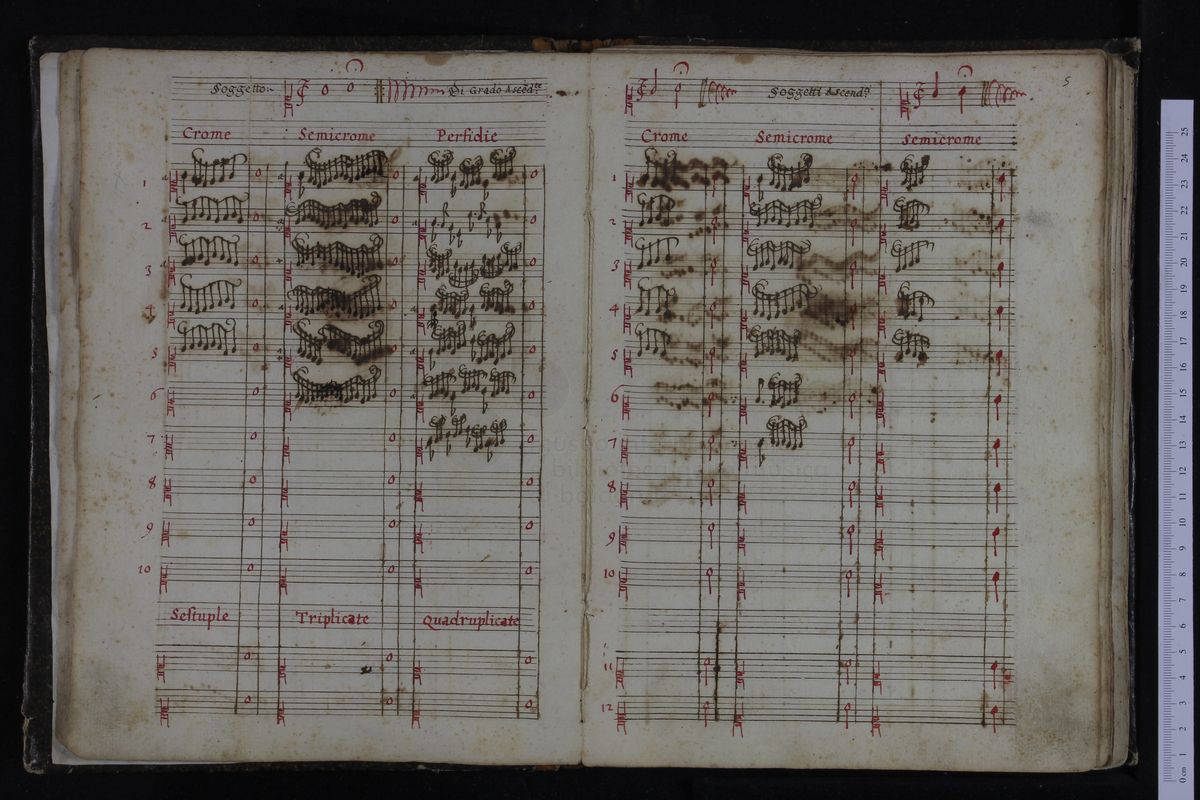 Soggetto:- Di Grado Ascēd.te
Crome Semicrome Perfidie
1
2
3
4
5
6
7
8
9
10
Sestuple Triplicate Quadruplicate
5
Soggetti Ascend.ti
Crome Semicrome Semicrome
1
2
3
4
5
6
7
8
9
10
11
12
0 cm 1 2 3 4 5 6 7 8 9 10 11 12 13 14 15 16 17 18 19 20 21 22 23 24 25